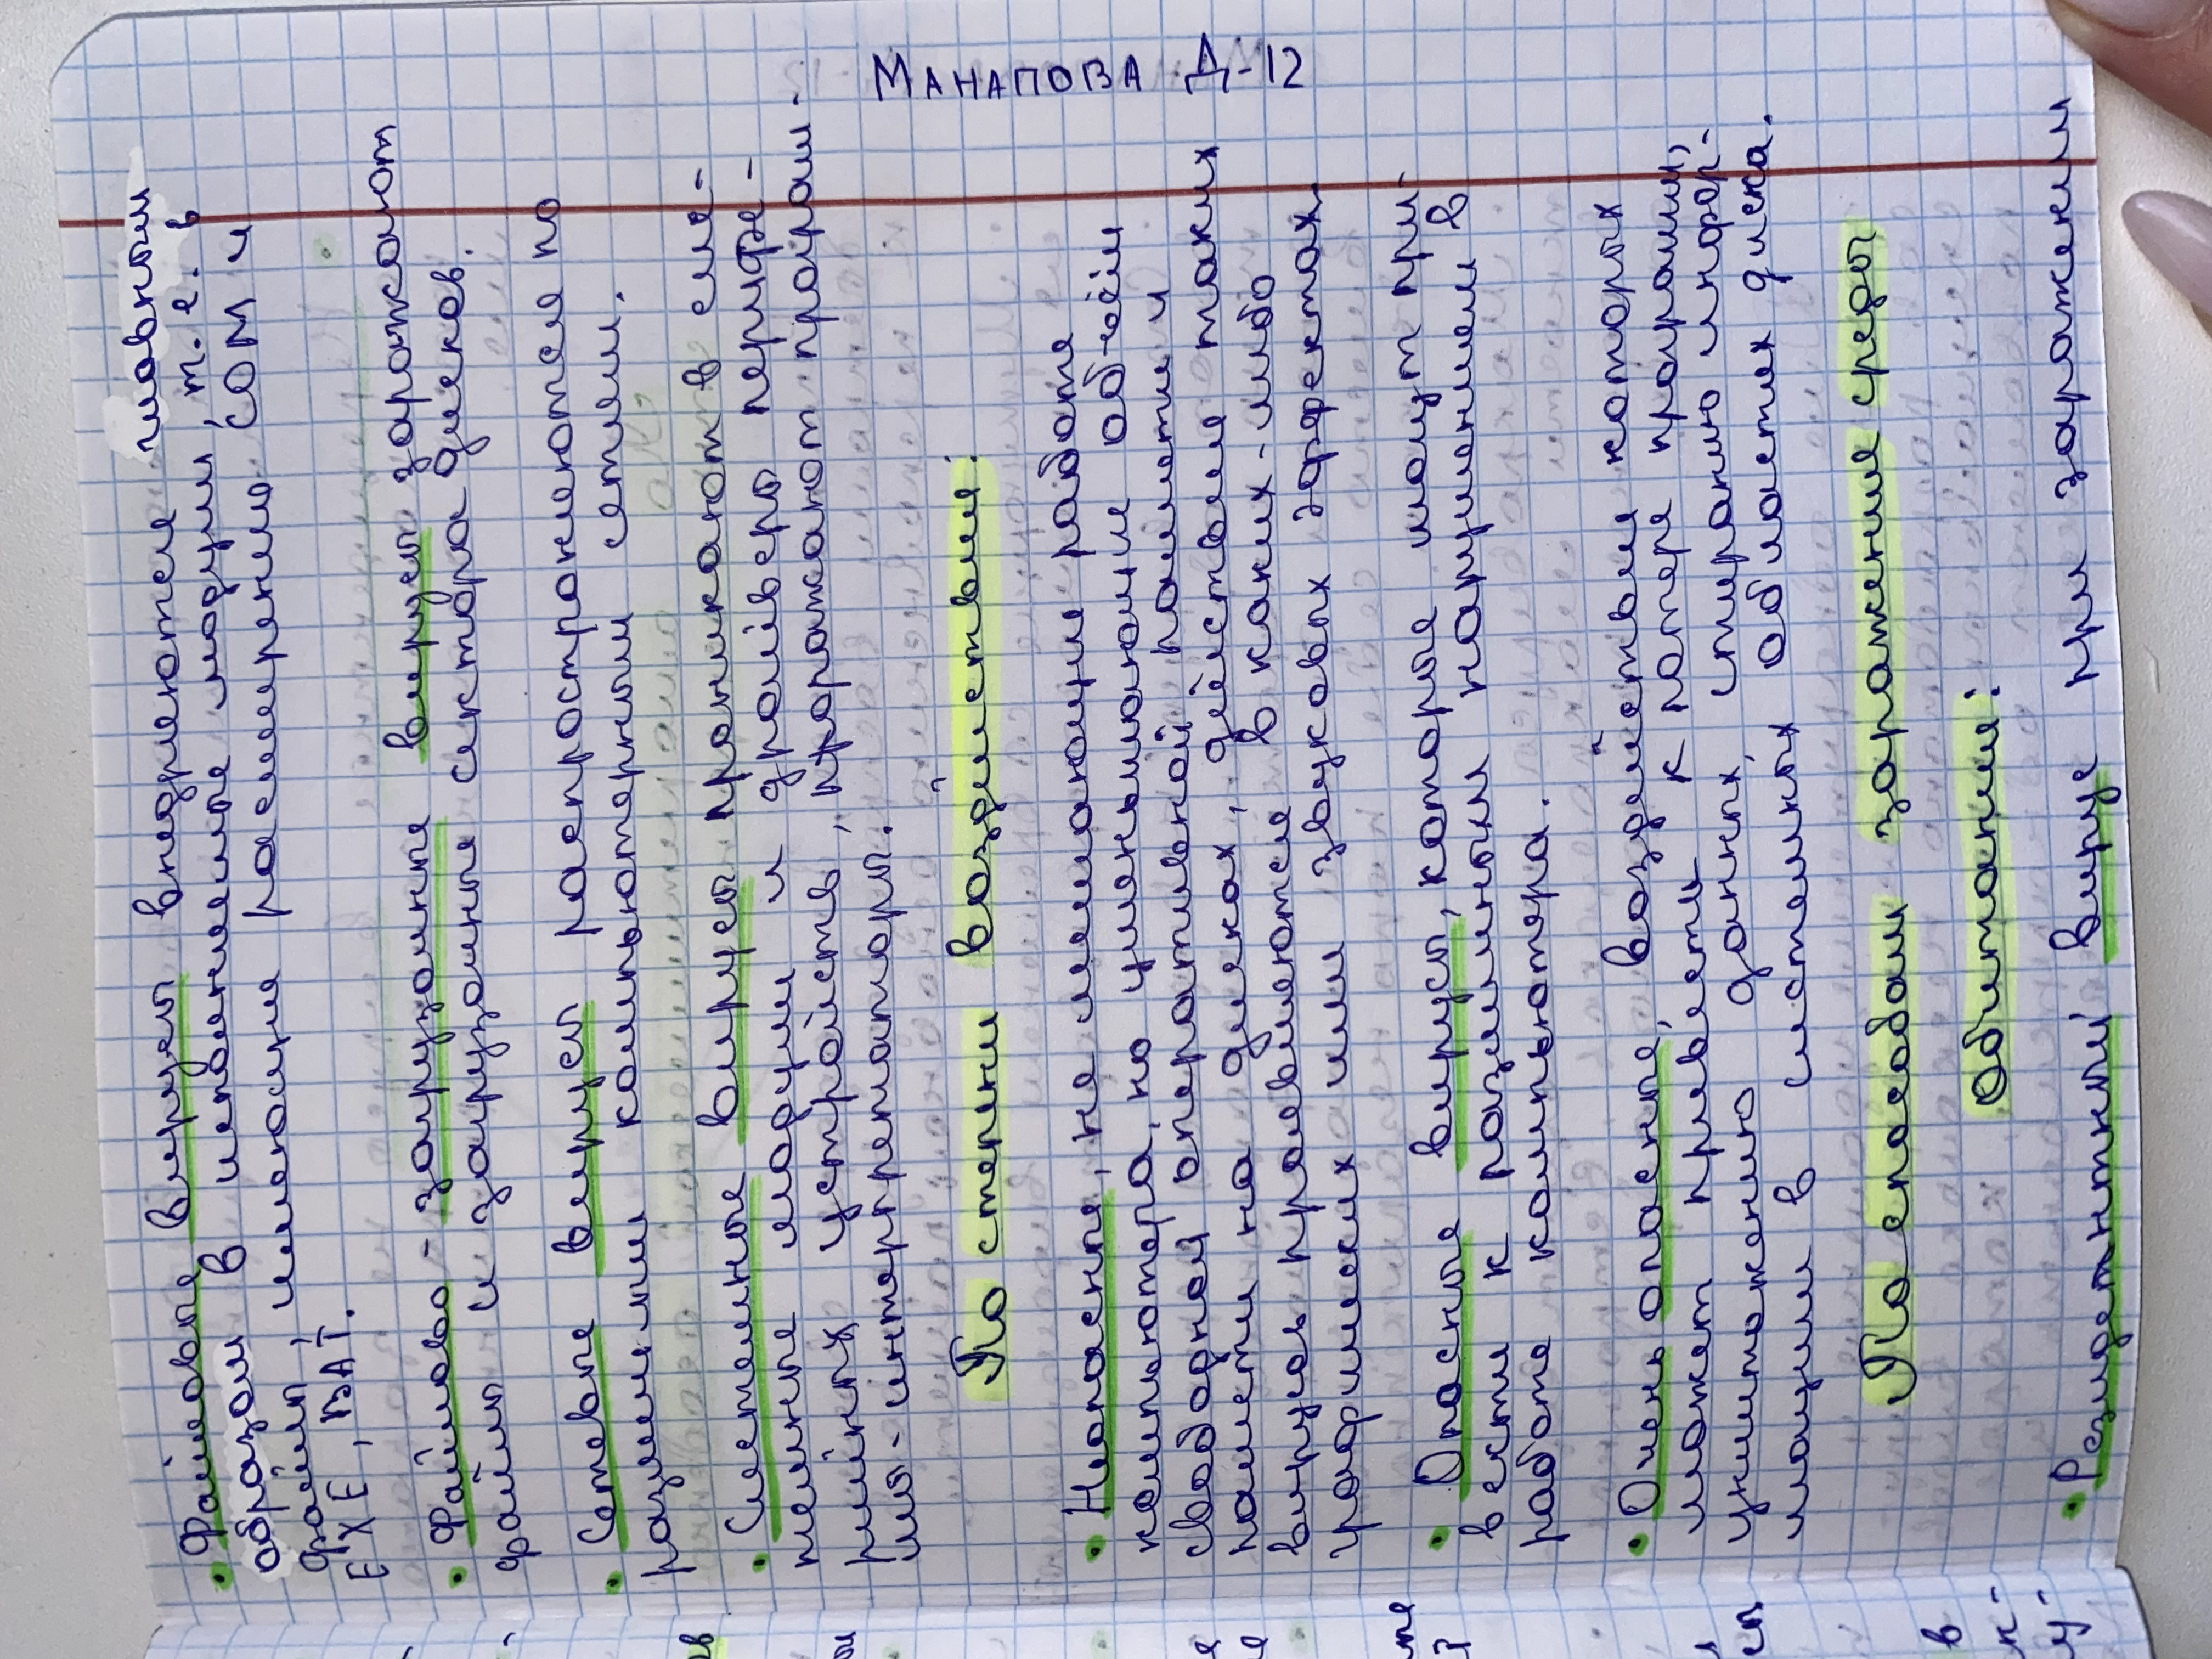 Манапова Д-12
• Файловые вирусы внедряются главным
образом в исполняемые модули, т.е. в
файлы, имеющие расширение COM и
EXE, BAT.
• Файлово-загрузочные вирусы заражают
файлы и загрузочные сектора дисков.
• Сетевые вирусы распространяются по
различным компьютерным сетям.
• Системные вирусы проникают в сис-
темные модули и драйверы перифе-
рийных устройств, поражают програм-
мы-интерпретаторы.
По степени воздействия:
• Неопасные, не мешающие работе
компьютера, но уменьшающие объём
свободной оперативной памяти и
памяти на дисках, действия таких
вирусов проявляются в каких-либо
графических или звуковых эффектах.
• Опасные вирусы, которые могут при-
вести к различным нарушениям в
работе компьютера.
• Очень опасные, воздействия которых
может привести к потере программ,
уничтожению данных, стиранию инфор-
мации в системных областях диска.
По способам заражения среды
обитания:
• Резидентный вирус при заражении